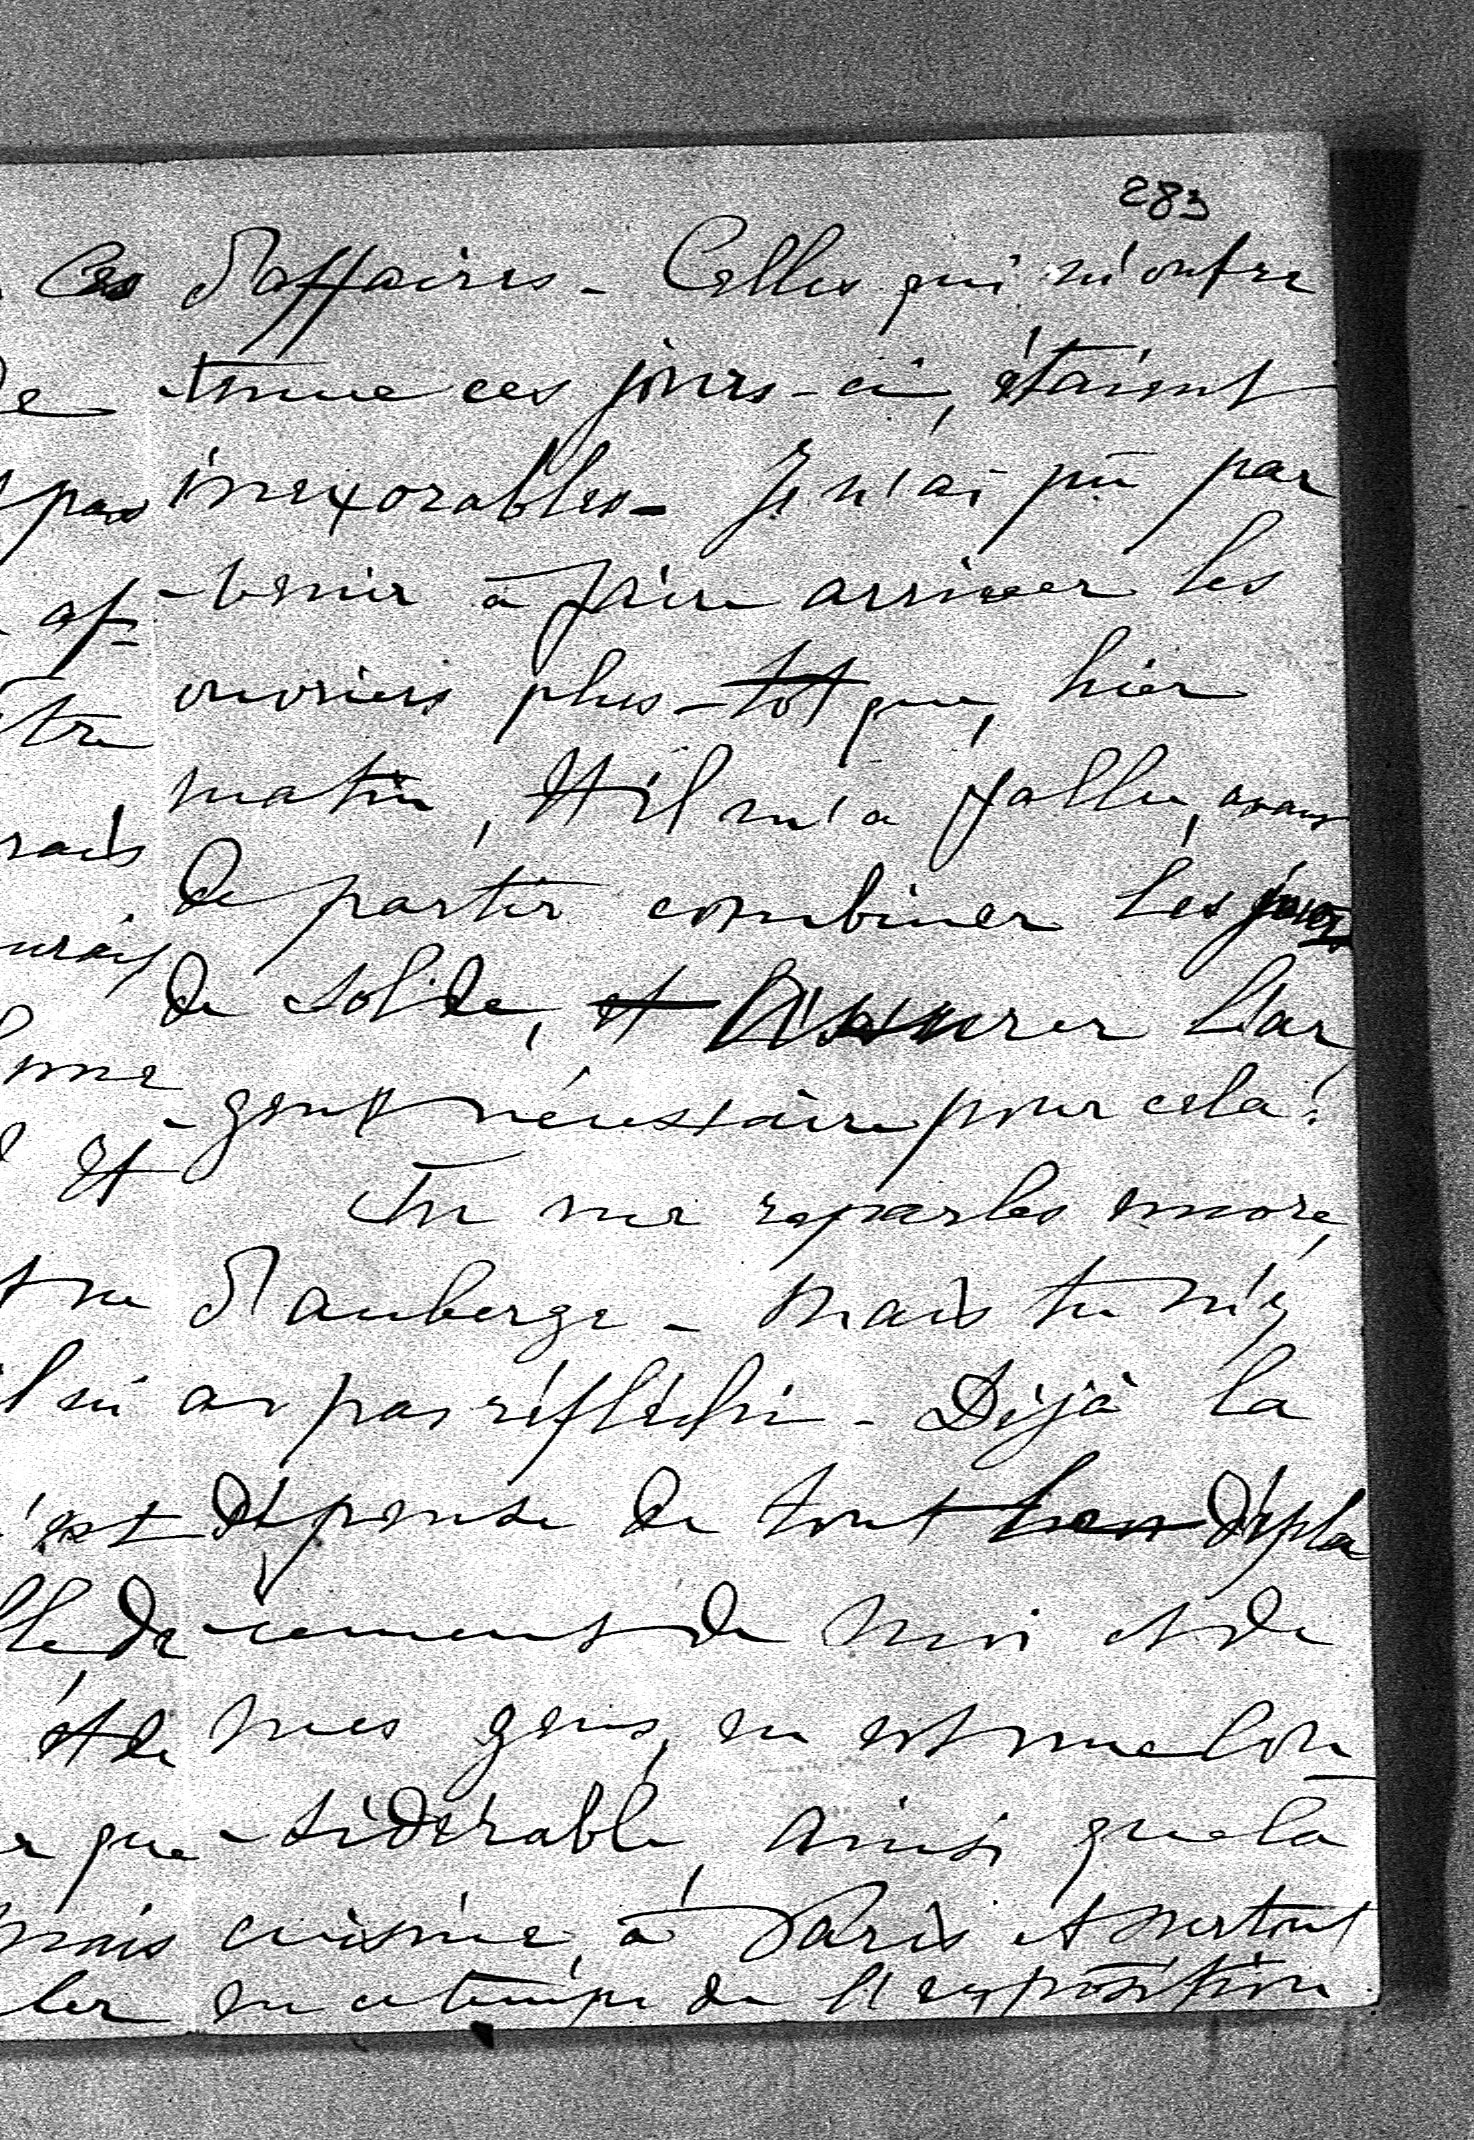 283
d'affaires - Celles qui m'ont re
tenue ces jours-ci, étaient
inexorables - Je n'ai pu par
-venir à faire arriver les
ouvriers plus-tot que, hier
matin, et il m'a fallu, avant
de partir combiner les jours
de solde, et m'assurer l'ar
-gent nécessaire pour cela!
Tu me reparles encore,
d'auberge - mais tu n'y
as pas réfléchi - Déjà la
dépense de tout déplà
-cement de moi et de
mes gens, en est une con
-sidérable, ainsi que la
cuisine, à Paris et surtout
en ce temps de l'exposition
Ces
de
pas
af-
tre
rais
urais
et
ne
est
de
et de
que
mais
ler